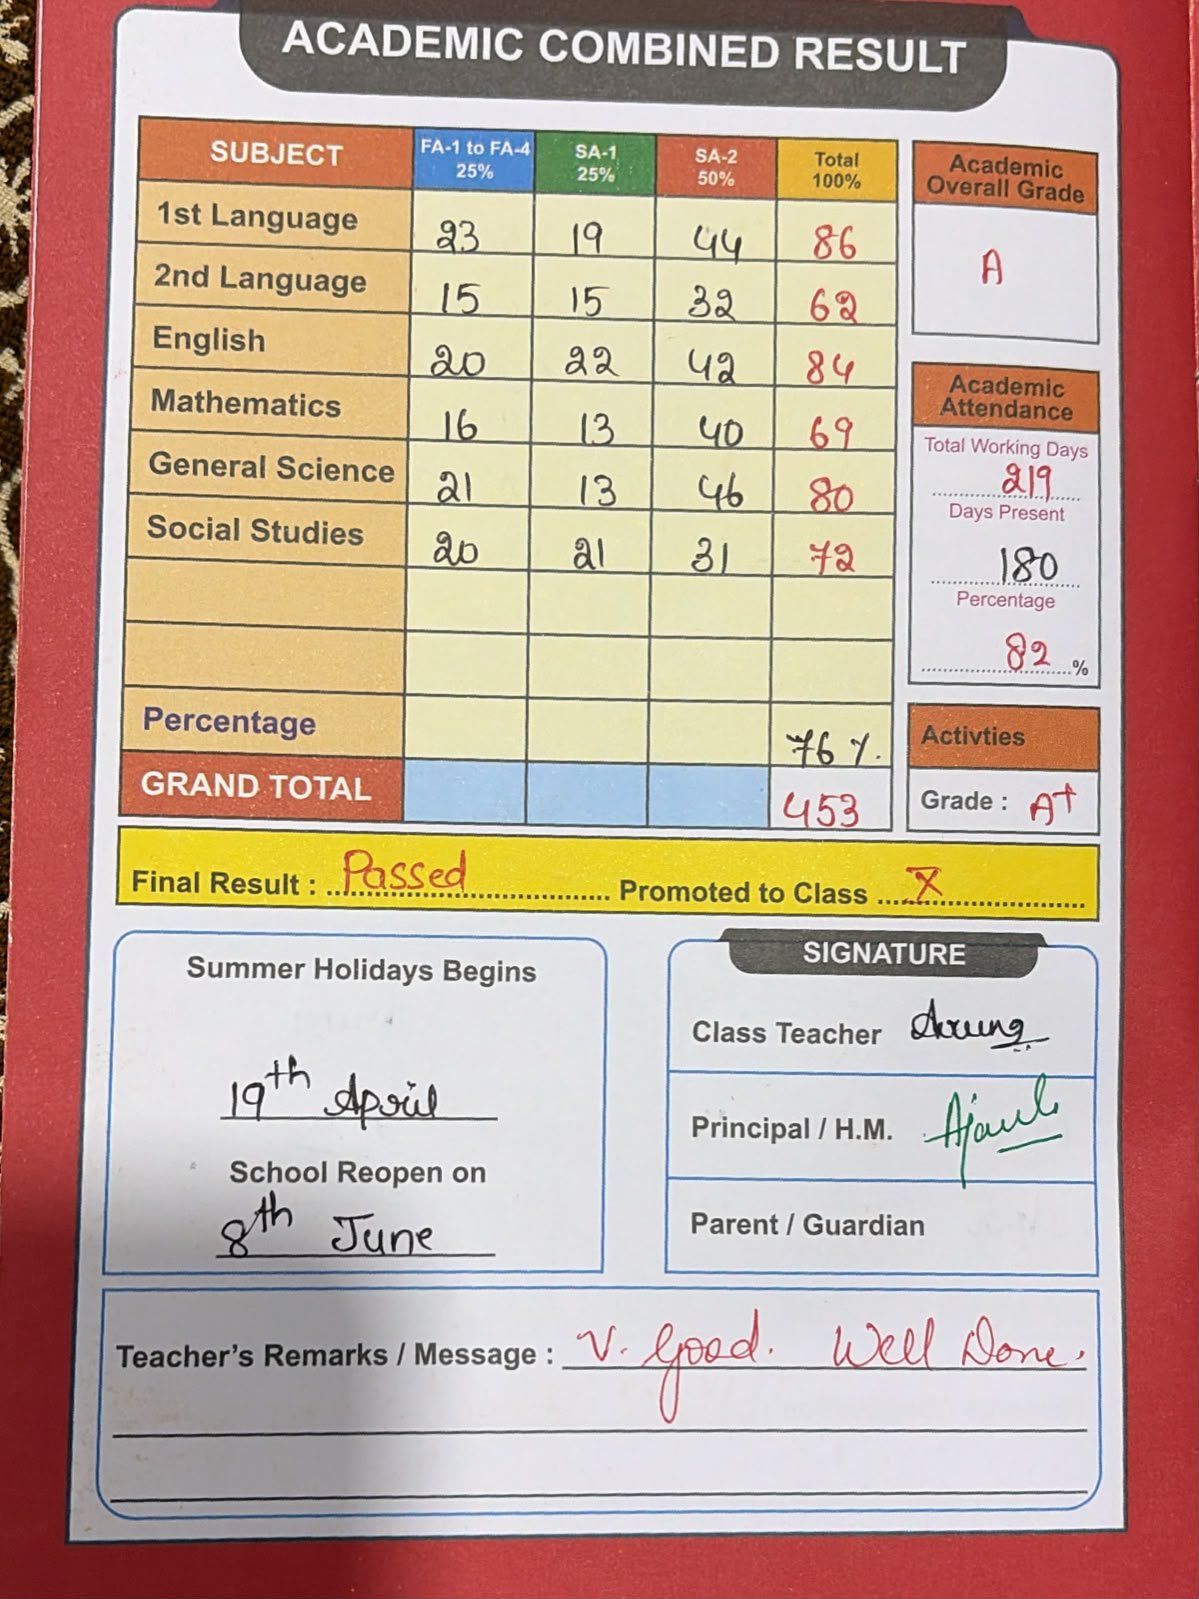 ACADEMIC COMBINED RESULT
SUBJECT FA-1 to FA-4 25% SA-1 25% SA-2 50% Total 100%
1st Language 23 19 44 86
2nd Language 15 15 32 62
English 20 22 42 84
Mathematics 16 13 40 69
General Science 21 13 46 80
Social Studies 20 21 31 72
Percentage 76 %.
GRAND TOTAL 453
Academic
Overall Grade
A
Academic
Attendance
Total Working Days
219
Days Present
180
Percentage
82 %
Activties
Grade : A+
Final Result : Passed Promoted to Class X
Summer Holidays Begins
19th April
School Reopen on
8th June
SIGNATURE
Class Teacher
Principal / H.M.
Parent / Guardian
Teacher's Remarks / Message : V. Good. Well Done.